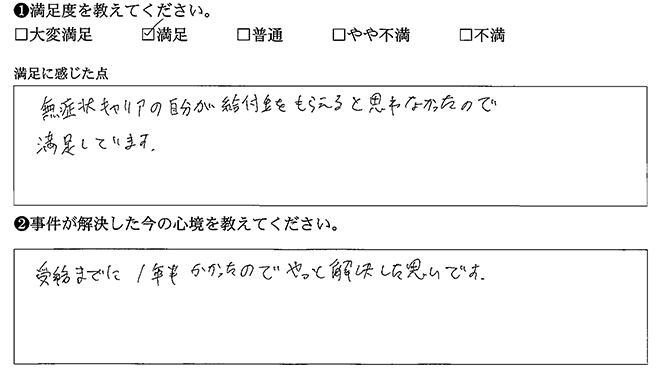 ❶満足度を教えてください。
□大変満足 ☑満足 □普通 □やや不満 □不満
満足に感じた点
無症状キャリアの自分が給付金をもらえると思わなかったので
満足しています.
❷事件が解決した今の心境を教えてください。
受給までに1年もかかったのでやっと解決した思いです.